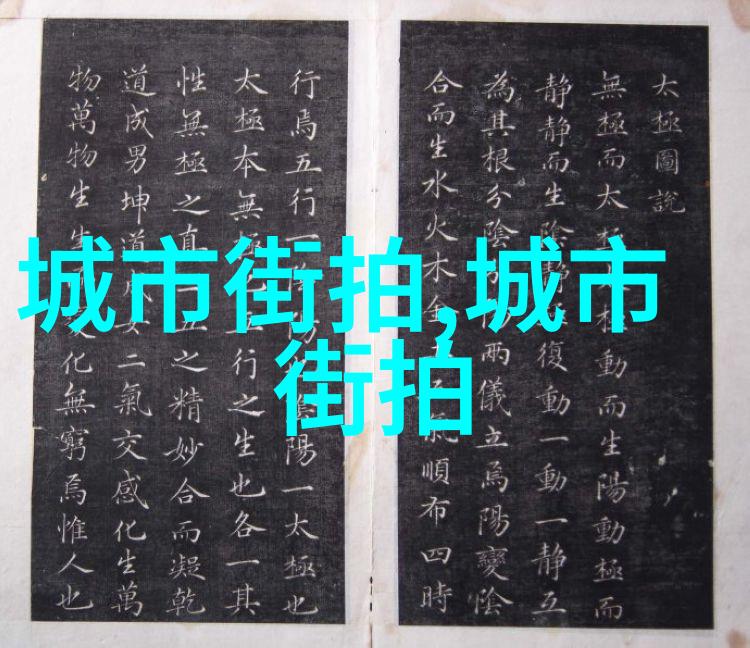 城市街拍,城市
街拍
太極圖說
無極而太極太極動而生陽動極而
静静而生陰静極復動一動一静互
為其根分陰分陽兩儀立焉陽變陰
合而生水火木金土五氣順布四時
行焉五行一陰陽也陰陽一太極也
太極本無極也五行之生也各一其
性無極之真二五之精妙合而凝乾
道成男坤道成女二氣交感化生萬
物萬物生生而變化無窮焉惟人也